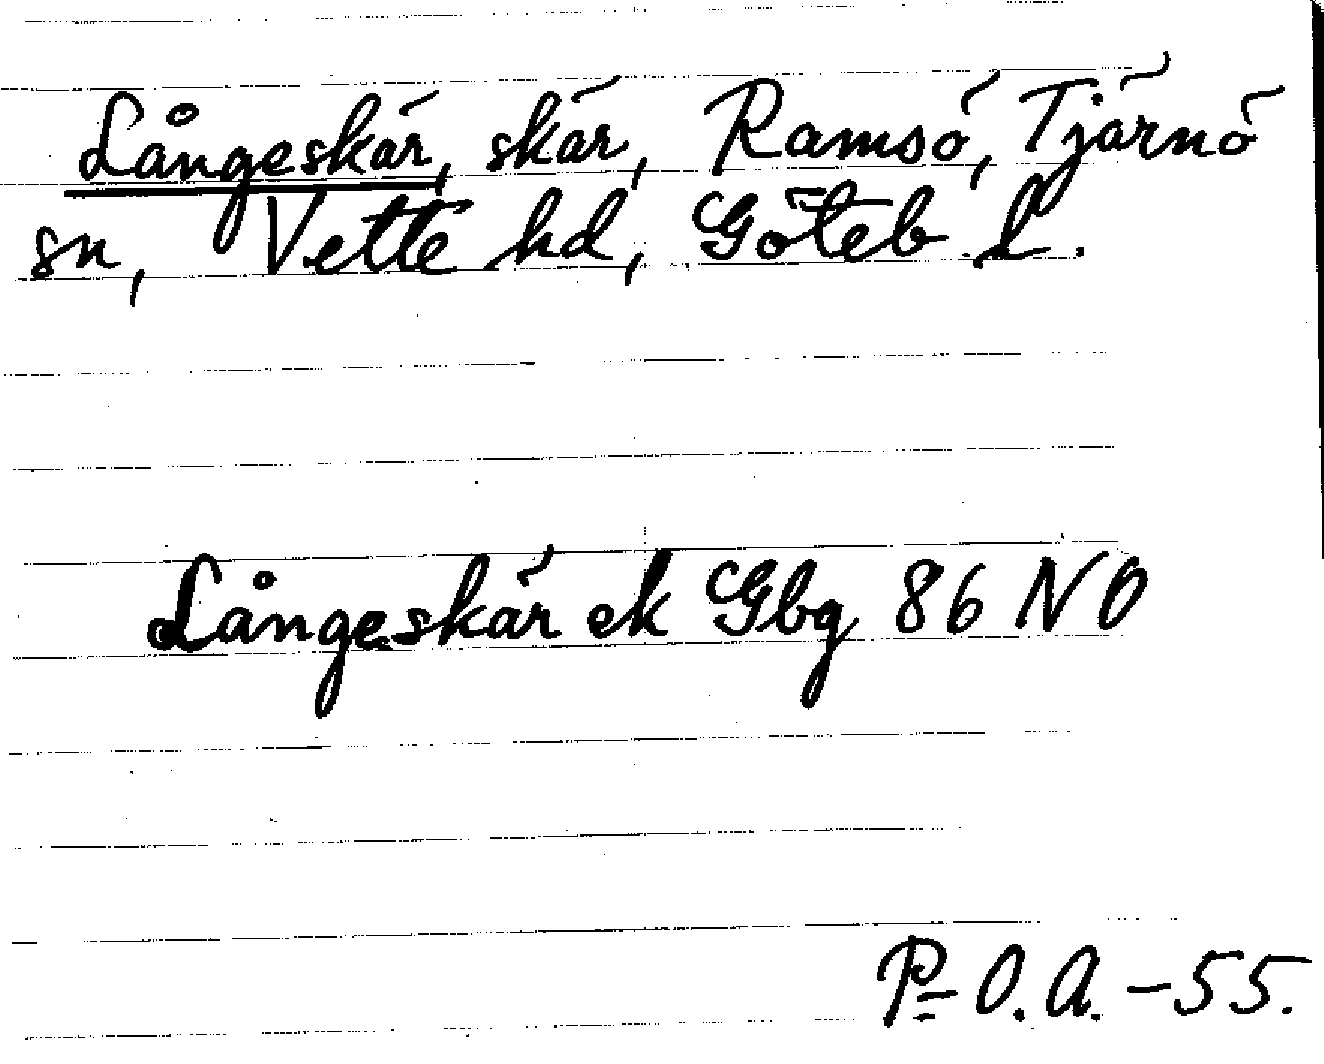 Långeskär, skär, Ramsö, Tjärnö
sn, Vette hd, Göteb. l.
Långeskär ek Gbg 86 NO
P-O.A.-55.